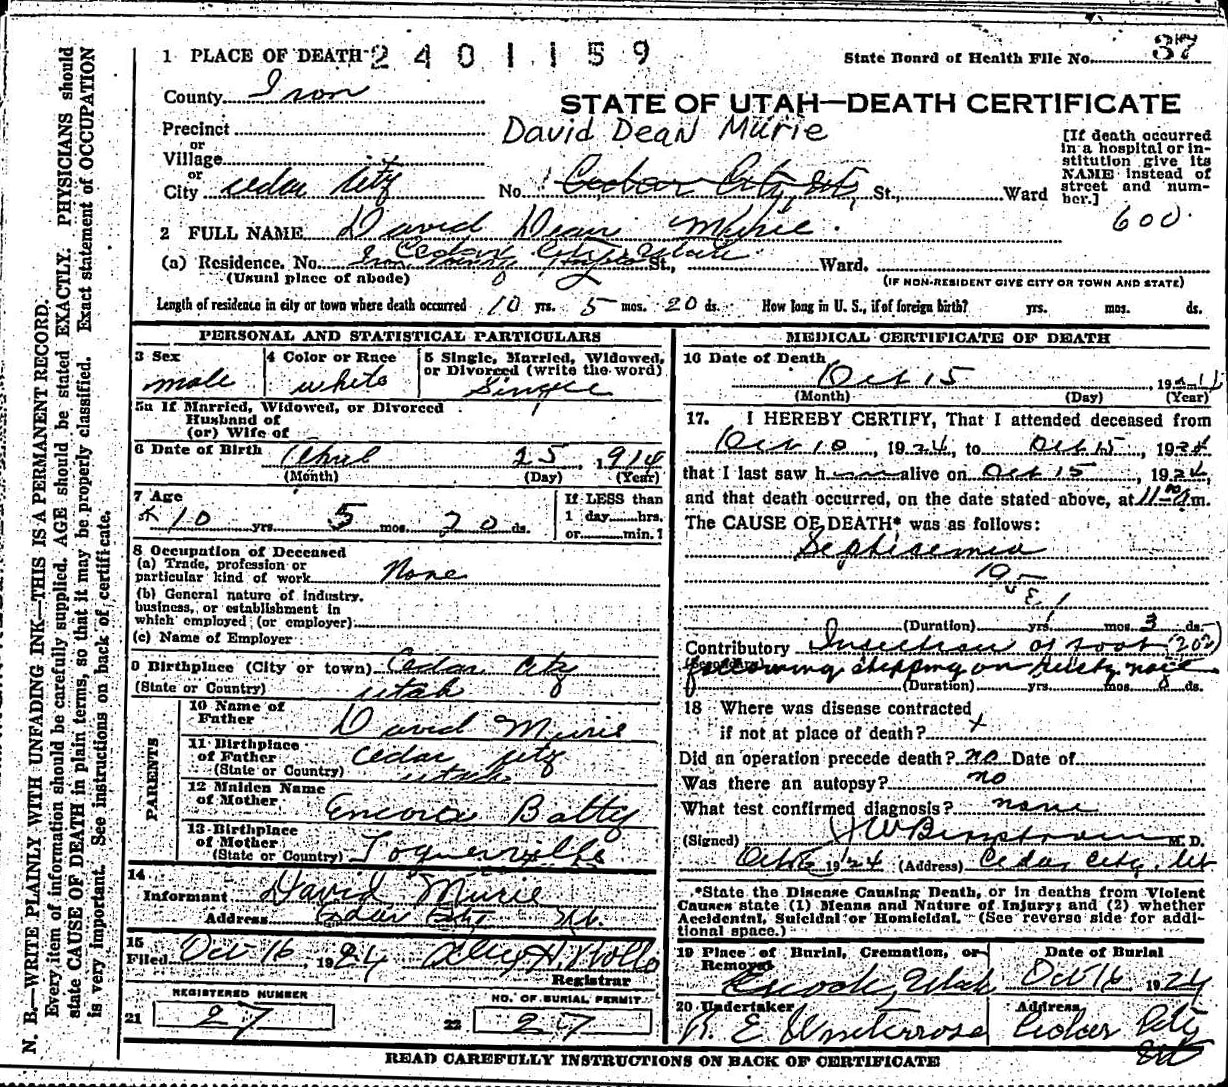 1 PLACE OF DEATH 2401159 State Board of Health File No. 37
County Iron
STATE OF UTAH—DEATH CERTIFICATE
Precinct David Dean Murie
or
Village
or
City Cedar City No. Cedar City, Ut, St., Ward
[If death occurred in a hospital or institution give its NAME instead of street and number.]
600
2 FULL NAME David Dean Murie.
(a) Residence. No. Cedar City Utah St., Ward.
(Usual place of abode) (IF NON-RESIDENT GIVE CITY OR TOWN AND STATE)
Length of residence in city or town where death occurred 10 yrs. 5 mos. 20 ds. How long in U. S., if of foreign birth? yrs. mos. ds.
PERSONAL AND STATISTICAL PARTICULARS
3 Sex male
4 Color or Race white
5 Single, Married, Widowed, or Divorced (write the word) Single
5a If Married, Widowed, or Divorced
Husband of
(or) Wife of
6 Date of Birth April 25, 1914
(Month) (Day) (Year)
7 Age
10 yrs. 5 mos. 20 ds.
If LESS than
1 day......hrs.
or......min.]
8 Occupation of Deceased
(a) Trade, profession or
particular kind of work None
(b) General nature of industry,
business, or establishment in
which employed (or employer)
(c) Name of Employer
9 Birthplace (City or town) Cedar City
(State or Country) Utah
PARENTS
10 Name of
Father David Murie
11 Birthplace
of Father Cedar City
(State or Country) Utah
12 Maiden Name
of Mother Batty
13 Birthplace
of Mother
(State or Country) Toquerville
14
Informant David Murie
Address Cedar City Ut.
15
Filed Oct 16, 1924
Registrar
REGISTERED NUMBER
21 27
NO. OF BURIAL PERMIT
22 27
MEDICAL CERTIFICATE OF DEATH
16 Date of Death
Oct 15, 19
(Month) (Day) (Year)
17. I HEREBY CERTIFY, That I attended deceased from
Oct 10, 1924, to Oct 15, 1924
that I last saw h alive on Oct 15, 1924,
and that death occurred, on the date stated above, at 11 m.
The CAUSE OF DEATH* was as follows:
Septisemia
195
(Duration) yrs. mos. 3 ds.
Contributory Infection of foot (202)
following stepping on rusty nail
(Duration) yrs. mos. 8 ds.
18 Where was disease contracted
if not at place of death?
Did an operation precede death? no Date of
Was there an autopsy? no
What test confirmed diagnosis? none
(Signed) M. D.
Oct 16, 1924 (Address) Cedar City, Ut
*State the Disease Causing Death, or in deaths from Violent
Causes state (1) Means and Nature of Injury; and (2) whether
Accidental, Suicidal or Homicidal. (See reverse side for additional space.)
19 Place of Burial, Cremation, or Removal
Utah
Date of Burial
Oct 16 1924
20 Undertaker
Address
Cedar City
Ut
READ CAREFULLY INSTRUCTIONS ON BACK OF CERTIFICATE
N. B.—WRITE PLAINLY WITH UNFADING INK—THIS IS A PERMANENT RECORD.
Every item of information should be carefully supplied. AGE should be stated EXACTLY. PHYSICIANS should
state CAUSE OF DEATH in plain terms, so that it may be properly classified. Exact statement of OCCUPATION
is very important. See instructions on back of certificate.